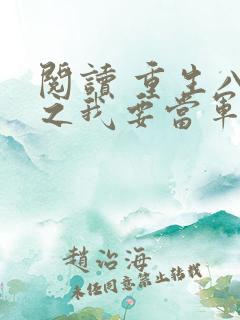 閱讀 重生八
之我要當軍
趙治海
未經同意禁止轉載